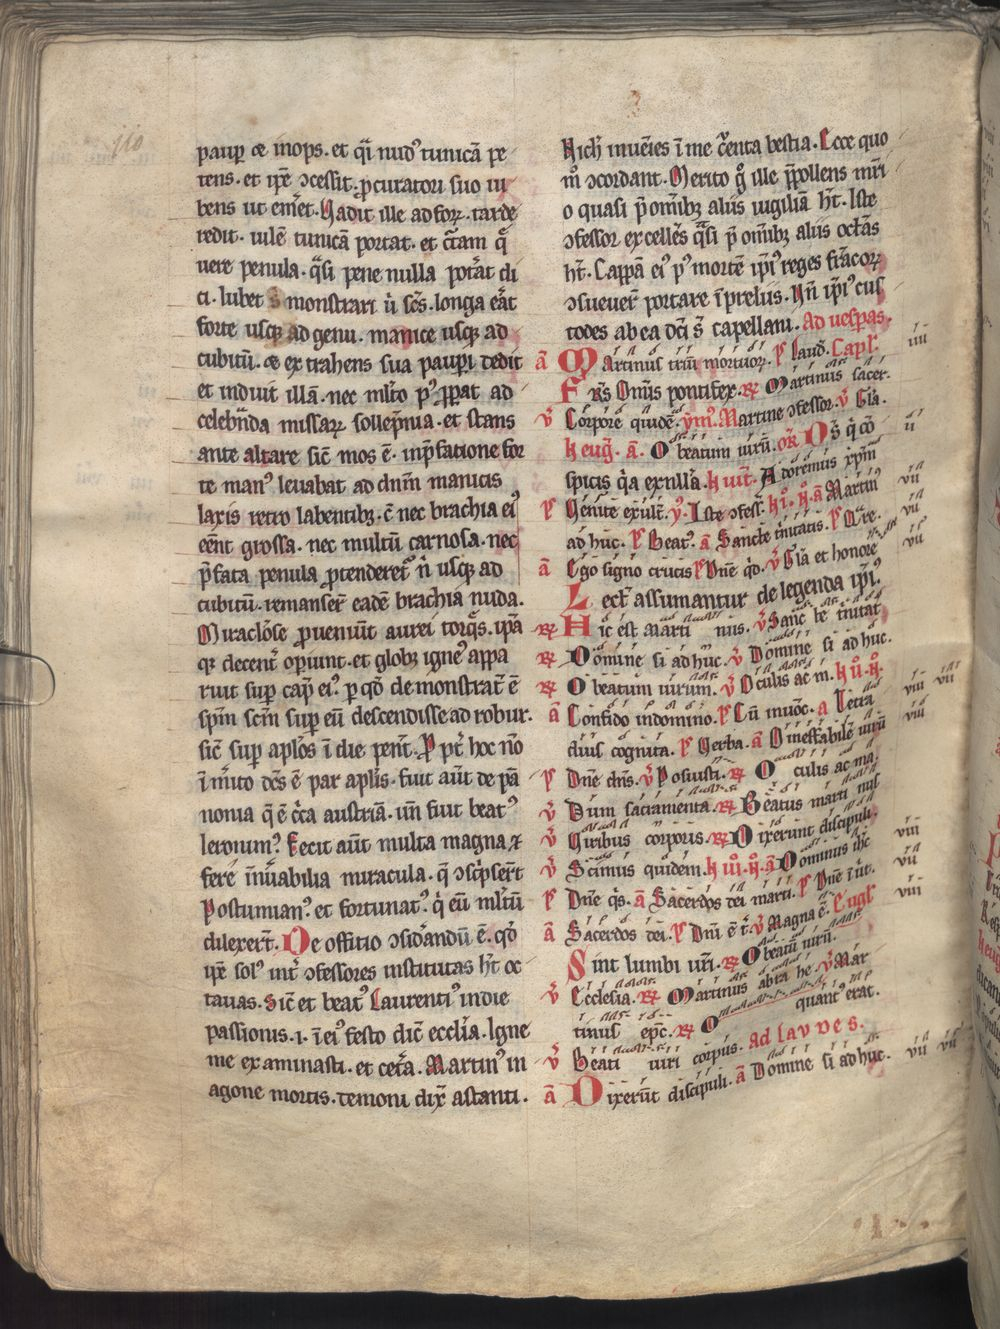 paup̄ ce inops. et q̄i nud᷒ tunicā pe
tens. et ip̄e ɔcessit. ꝓcuratori suo iu
bens ut em̄et. Vadit ille ad foꝝ. tarde
redit. uilē tunicā portat. et c̄tam q̄
uere penula. q̄si pene nulla pot̄at di
ci. lubet monstrari
forte usqꝫ ad genu. manice usqꝫ ad
cubitū. ce ex trahens sua paupi dedit
et induit illā. nec ml̄to p᷒ ꝓpat ad
celebn̄da missaꝝ sollēpnia. et stans
ante altare sic̄ mos ē. in p̄fatione for
te man᷒ leuabat ad dn̄m manicis
laxis retro labentibꝫ. c̄ nec brachia ei᷒
eēnt grossa. nec multū carnosa. nec
p̄fata penula ꝓtenderet᷒ n̄ usqꝫ ad
cubitū. remanser̄ eadē brachia nuda.
Miraclōse ꝓueniūt aurei torq̄s. ip̄a
qꝫ decent᷒ opiunt. et globꝫ igne᷒ appa
ruit sup̄ cap̄ ei᷒. p qd̄ demonstrat᷒ ē
spm̄ scm̄ sup̄ eū descendisse ad robur.
sic̄ sup̄ apl̄os ī die pent̄. P pt̄ hoc n̄o
ī m̄ito dc̄s ē par apl̄is. fuit aūt de pā
nonia q̄ ē c̄ca austriā. un̄ fuit beat᷒
ieronim᷒. Fecit aūt multa magna ⁊
fere īnūabilia miracula. q̄ ɔsc̄psert̄
Postumian᷒. et fortunat᷒. q̄ eū ml̄tū
dilexert̄. De offitio ɔsid̄andū ē. qd̄
ip̄e sol᷒ int̄ ɔfessores institutas h̄t oc
tauas. Sic̄ et beat᷒ Laurenti᷒ in die
passionis. i. ī ei᷒ festo dic̄t eccl̄ia. Igne
me examinasti. et cet̄a. Martin᷒ in
agone mortis. demoni dix̄ astanti.
Nich̄ inuēies ī me c̄enta bestia. Ecce quo
m̄ ɔcordant. Merito g̊ ille p̄pollens
o quasi p̄ om̄ibꝫ aliis uigiliā h̄t. Iste
ɔfessor excellēs q̄si p̄ om̄ibꝫ aliis octās
h̄t. Cappā ei᷒ p᷒ mortē ip̄i᷒ reges fr̄acoꝝ
ɔsueuer̄ portare ī preliis. Vn̄ ip̄i᷒ cus
todes ab ea dc̄i s̄t capellani. Ad uesp̄as.
ā Martinus triū mortuoꝝ. P̄ laud̄. Capl̄. iii
Frs̄ Om̄is pontifex. ℟ Martinus sacer.
℣ Corpore quidē. ym̄. Martine ɔfessor. ℣ Gl̄a.
In eug̊. ā. O beatum uirū. or̄. Ds̄ q̄ cō ii
spicis q̄a ex nulla. In uit̄. Adoremus xpm̄
P̄ Venite exult̄. ẏ. Iste ɔfess̄. In i̊. n̊. ā Martin᷒ vii
ad huc̄. P̄ Beat᷒. ā Sancte trinitatis. P̄ Q̄re. vii
ā Ego signo crucis P̄ Dn̄e qd̄. ℣ Gl̄a et honore vii
Lect̄ assumantur de legenda ip̄i᷒.
℟ Hic est Marti nus. ℣ Sanc̄ te t̄nitat̄
℟ Domine si ad huc. ℣ Domine si ad huc.
℟ O beatum uirum. ℣ Oculis ac m. In ii̊. n̊.
ā Confido in domino. P̄ Cū inuoc̄. a Tetra viii vii
dius cognita. P̄ Verba. ā O ineffabilē uirū viii
P̄ Dn̄e dn̄s. ℣ Posuisti. ℟ O culis ac ma.
℣ Dum sacramenta. ℟ Beatus marti nus
℣ Viribus corporis. ℟ Dixerunt discipuli.
℣ Scimus quidem. In iii̊. n̊. ā Dominus ih̄c viii
P̄ Dn̄e q̄s. ā Sacerdos dei marti. P̄ Dn̄e ī ūt. vii
ā Sacerdos dei. P̄ Dn̄i ē t̄. ℣ Magna ē. Eūgl̄ viii
Sint lumbi ur̄i. ℟ O beatū uirū.
℣ Ecclesia. ℟ Martinus abra he. ℣ Mar
tinus ep̄c. ℟ O quant᷒ erat.
℣ Beati uiri corpus. Ad laudes.
ā Dixerūt discipuli. ā Domine si ad huc. vii vii